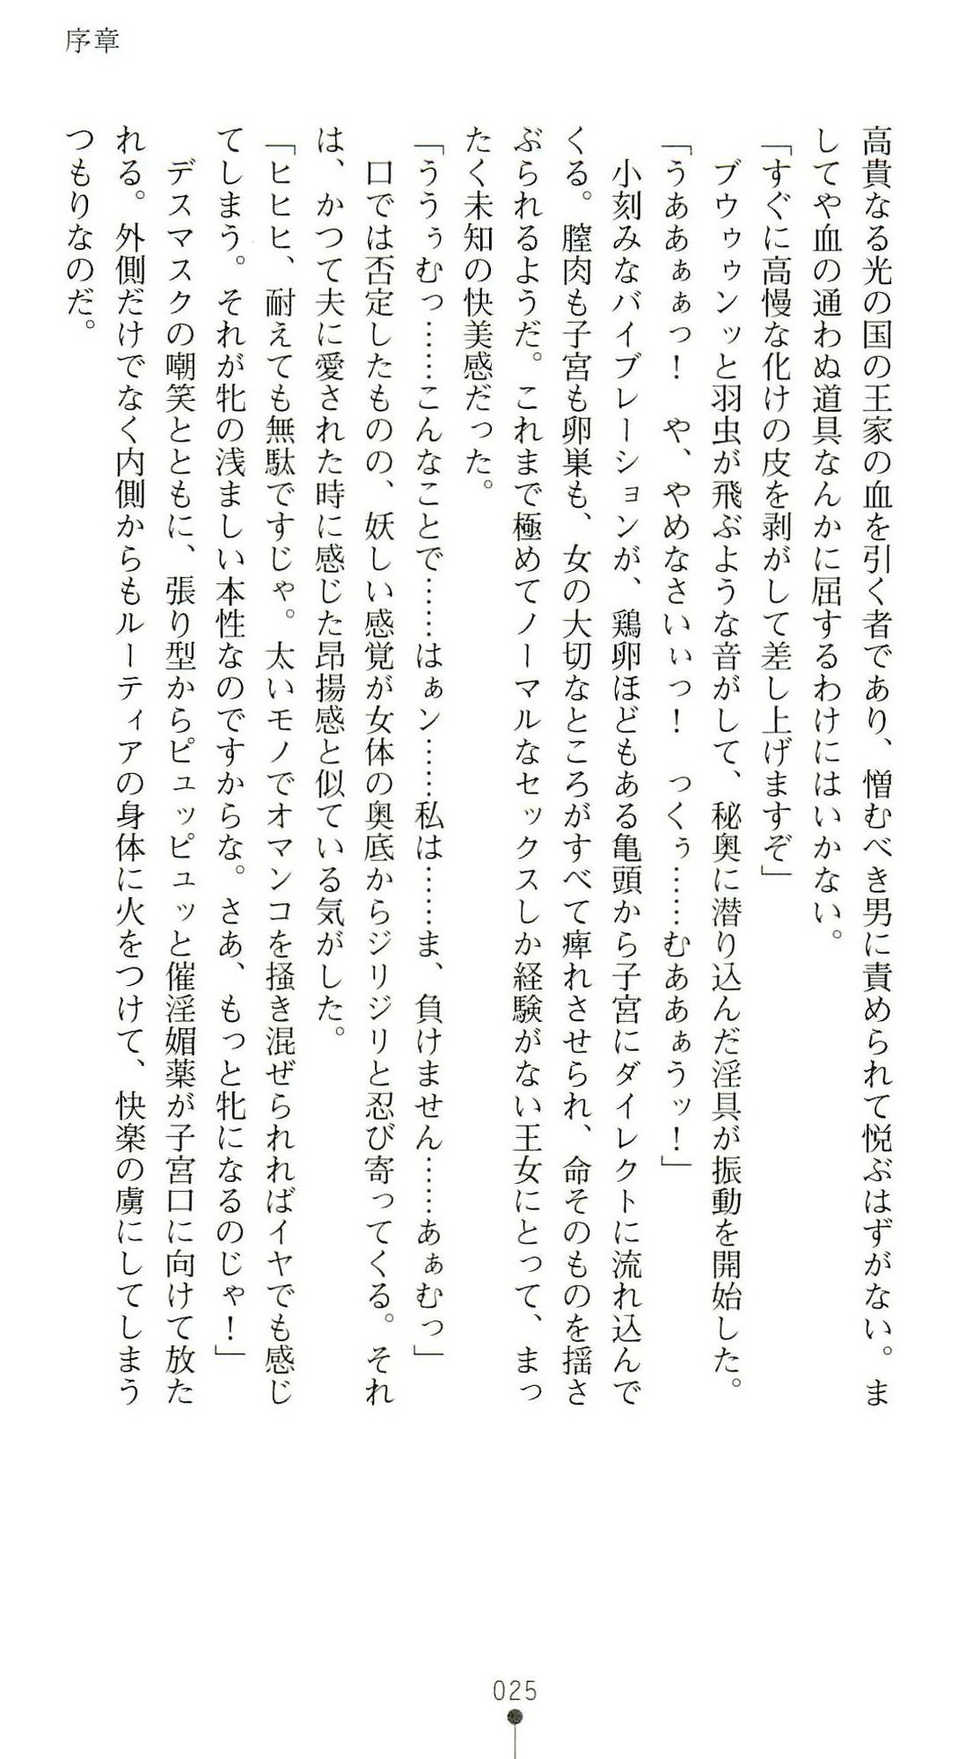 序章
高貴なる光の国の王家の血を引く者であり、憎むべき男に責められて悦ぶはずがない。ま
してや血の通わぬ道具なんかに屈するわけにはいかない。
「すぐに高慢な化けの皮を剥がして差し上げますぞ」
ブウゥゥンッと羽虫が飛ぶような音がして、秘奥に潜り込んだ淫具が振動を開始した。
「うああぁぁっ！　や、やめなさいぃっ！　っくぅ……むああぁうッ！」
小刻みなバイブレーションが、鶏卵ほどもある亀頭から子宮にダイレクトに流れ込んで
くる。膣肉も子宮も卵巣も、女の大切なところがすべて痺れさせられ、命そのものを揺さ
ぶられるようだ。これまで極めてノーマルなセックスしか経験がない王女にとって、まっ
たく未知の快美感だった。
「ううぅむっ……こんなことで……はぁン……私は……ま、負けません……あぁむっ」
口では否定したものの、妖しい感覚が女体の奥底からジリジリと忍び寄ってくる。それ
は、かつて夫に愛された時に感じた昂揚感と似ている気がした。
「ヒヒヒ、耐えても無駄ですじゃ。太いモノでオマンコを掻き混ぜられればイヤでも感じ
てしまう。それが牝の浅ましい本性なのですからな。さあ、もっと牝になるのじゃ！」
デスマスクの嘲笑とともに、張り型からピュッピュッと催淫媚薬が子宮口に向けて放た
れる。外側だけでなく内側からもルーティアの身体に火をつけて、快楽の虜にしてしまう
つもりなのだ。
025